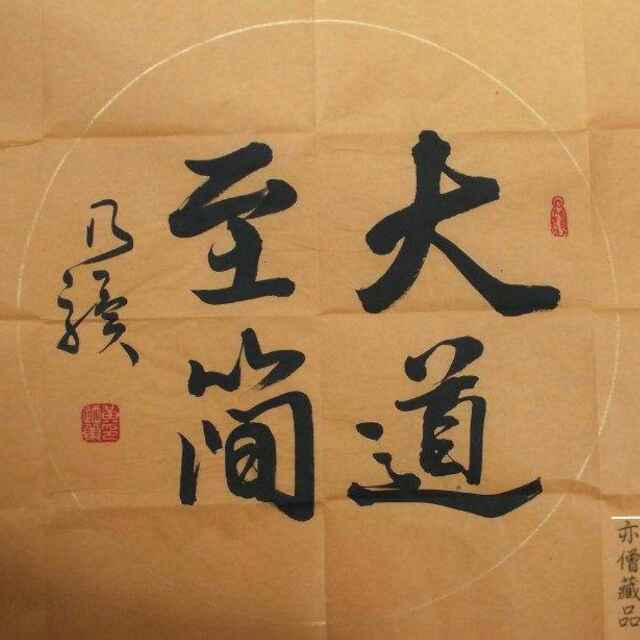 大道
至简
乃骥
亦僧藏品